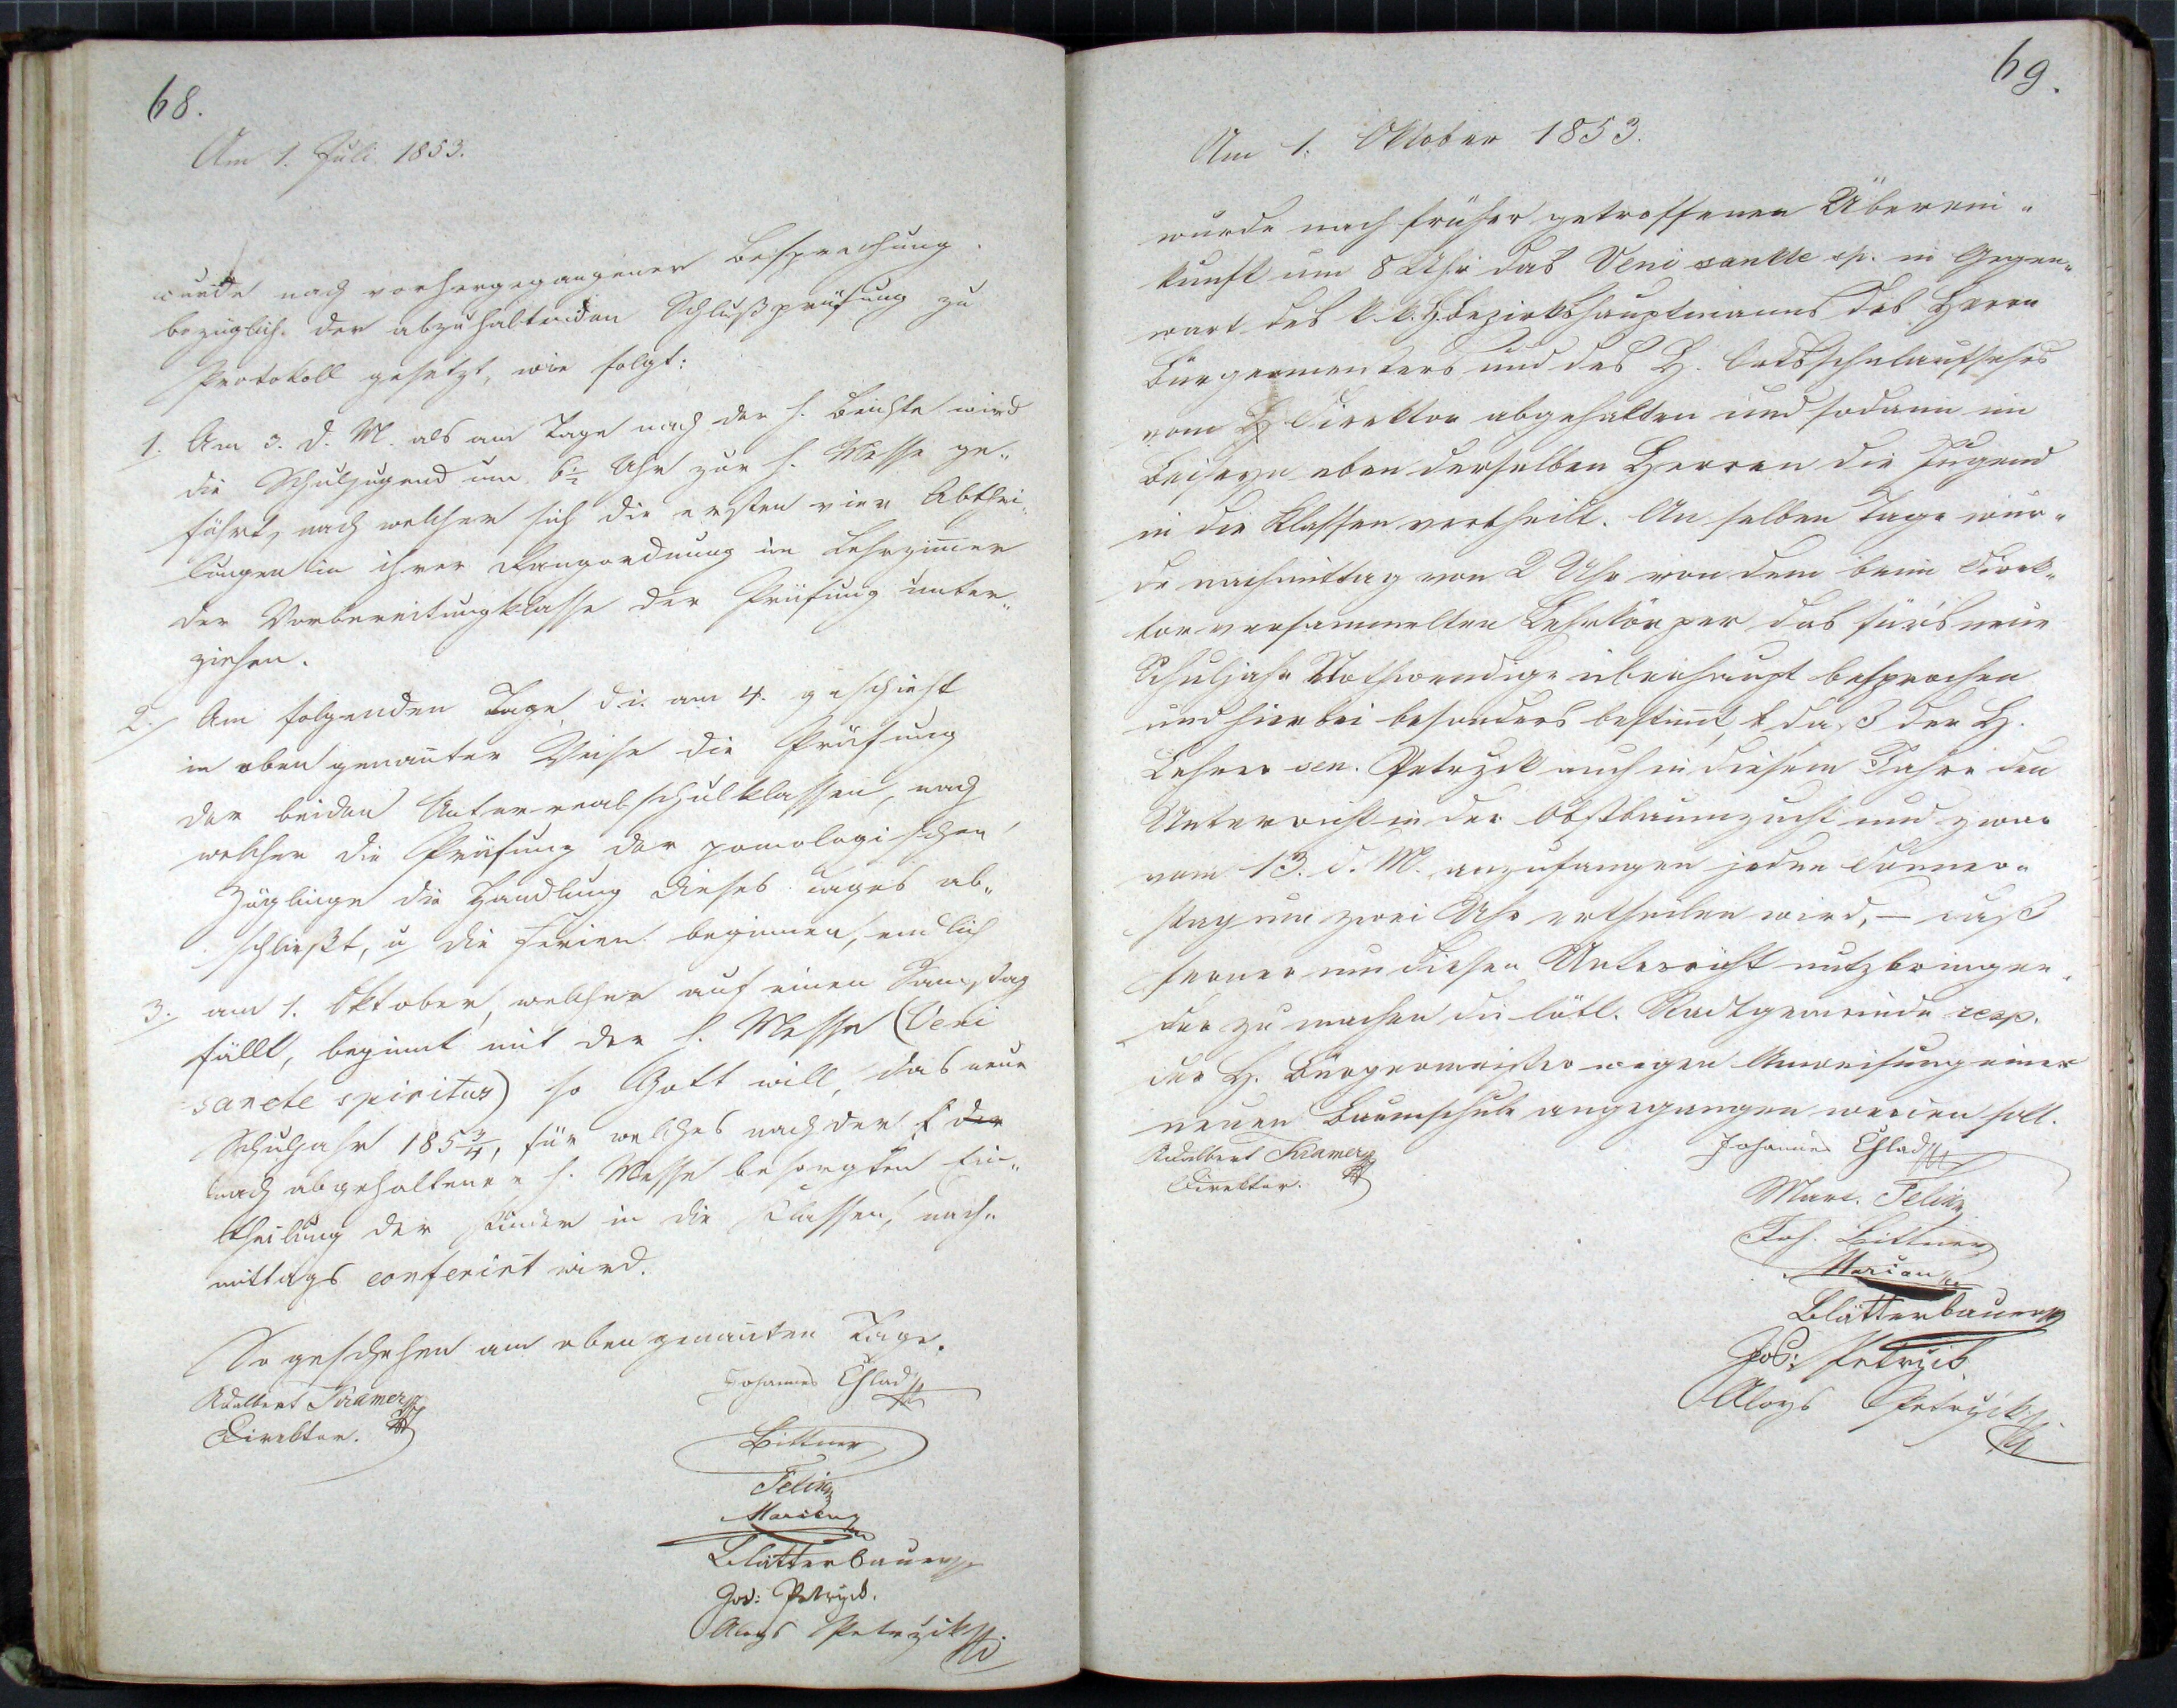 68.
Am 1. Juli 1853.
wurde nach vorhergegangener Besprechung
bezüglich der abzuhaltenden Schlußprüfung zu
Protokoll gesetzt, wie folgt:
1. Am 3. d. M. als am Tage nach der h. Beichte wird
die Schuljugend um 6½ Uhr zur h. Messe ge„
führt, nach welcher sich die ersten vier Abthei„
lungen in ihrer Rangordnung im Lehrzimmer
der Vorbereitungklasse der Prüfung unter„
ziehen.
2. Am folgenden Tage d. i. am 4. geschieht
in oben genannter Weise die Prüfung
der beiden Unterrealschulklassen, nach
welcher die Prüfung der pomologischen
Zöglinge die Handlung dieses Tages ab„
schließt, u die Ferien beginnen, endlich
3. am 1. Oktober, welcher auf einen Samstag
fällt, beginnt mit der h. Messe (Veni
sancte spiritus) so Gott will, das neue
Schuljahr 185¾, für welches nach der der
nach abgehaltener h. Messe besorgten Ein„
theilung der Kinder in die Klassen, nach„
mittags conferirt wird.
So geschehen am oben genannten Tage.
Adalbert Kramer
Direktor.
Johannes Chlad
Bittner
Felix
Marian
Blätterbauer
Jos: Petrzik.
Aloys Petrzik
69.
Am 1. Oktober 1853.
wurde nach früher getroffenen Überein„
kunft um 8 Uhr das Veni sankte sp. in Gegen„
wart des k. k. H. Bezirkshauptmanns des Herrn
Bürgermeisters und des H. Ortsschulaufsehers
vom H Direktor abgehalten und sodann im
Beiseyn eben derselben Herren die Jugend
in die Klassen vertheilt. An selben Tage wur„
de nachmittag von 2 Uhr von dem beim Direk„
tor versammelten Lehrkörper das fürs neue
Schuljahr Nothwendige überhaupt besprochen
und hierbei besonders bestimmt, daß der H.
Lehrer sen. Petrzik auch in diesem Jahre den
Unterricht in der Obstbaumzucht und zwar
vom 13. d. M. anzufangen jeden Donner„
stag um zwei Uhr ertheilen wird, – daß
ferner um diesen Unterricht nutzbringen„
der zu machen die löbl. Stadtgemeinde resp.
der H. Bürgermeister wegen Anweisung einer
neuen Baumschule angegangen werden soll.
Adalbert Kramer
Direktor.
Johannes Chlad
Marc. Felix
Joh. Bittner
Marian
Blätterbauer
Jos: Petrzik
Aloys Petrzik